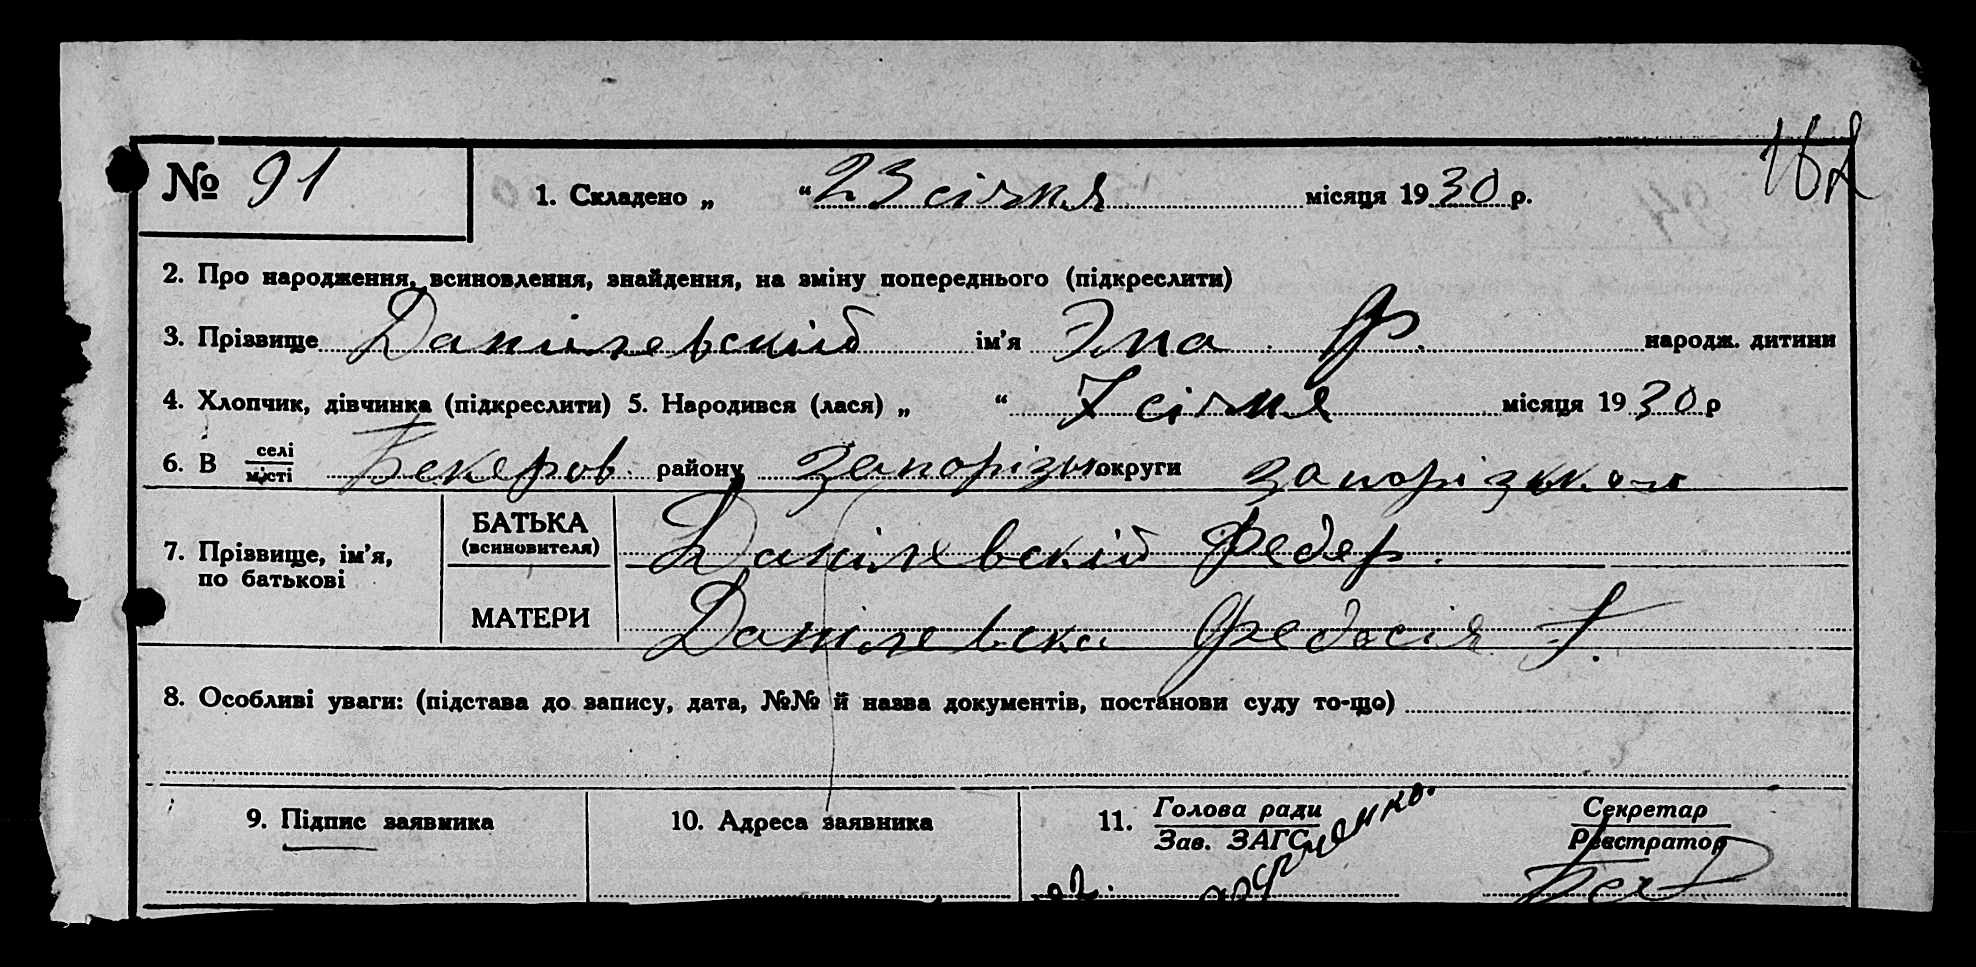 № 91
1. Складено „ “ 23 січня місяця 1930 р.
2. Про народження, всиновлення, знайдення, на зміну попереднього (підкреслити)
3. Прізвище Данілевский ім'я Эма Ф. народж. дитини
4. Хлопчик, дівчинка (підкреслити) 5. Народився (лася) „ “ 7 січня місяця 1930 р
6. В селі місті району Запорізьк округи
7. Прізвище, ім'я, по батькові
БАТЬКА (всиновителя) Данілевскій Федер.
МАТЕРИ Данілевска Федосія
8. Особливі уваги: (підстава до запису, дата, №№ й назва документів, постанови суду то-що)
9. Підпис заявника 10. Адреса заявника 11. Голова ради Зав. ЗАГС Секретар Реєстратор